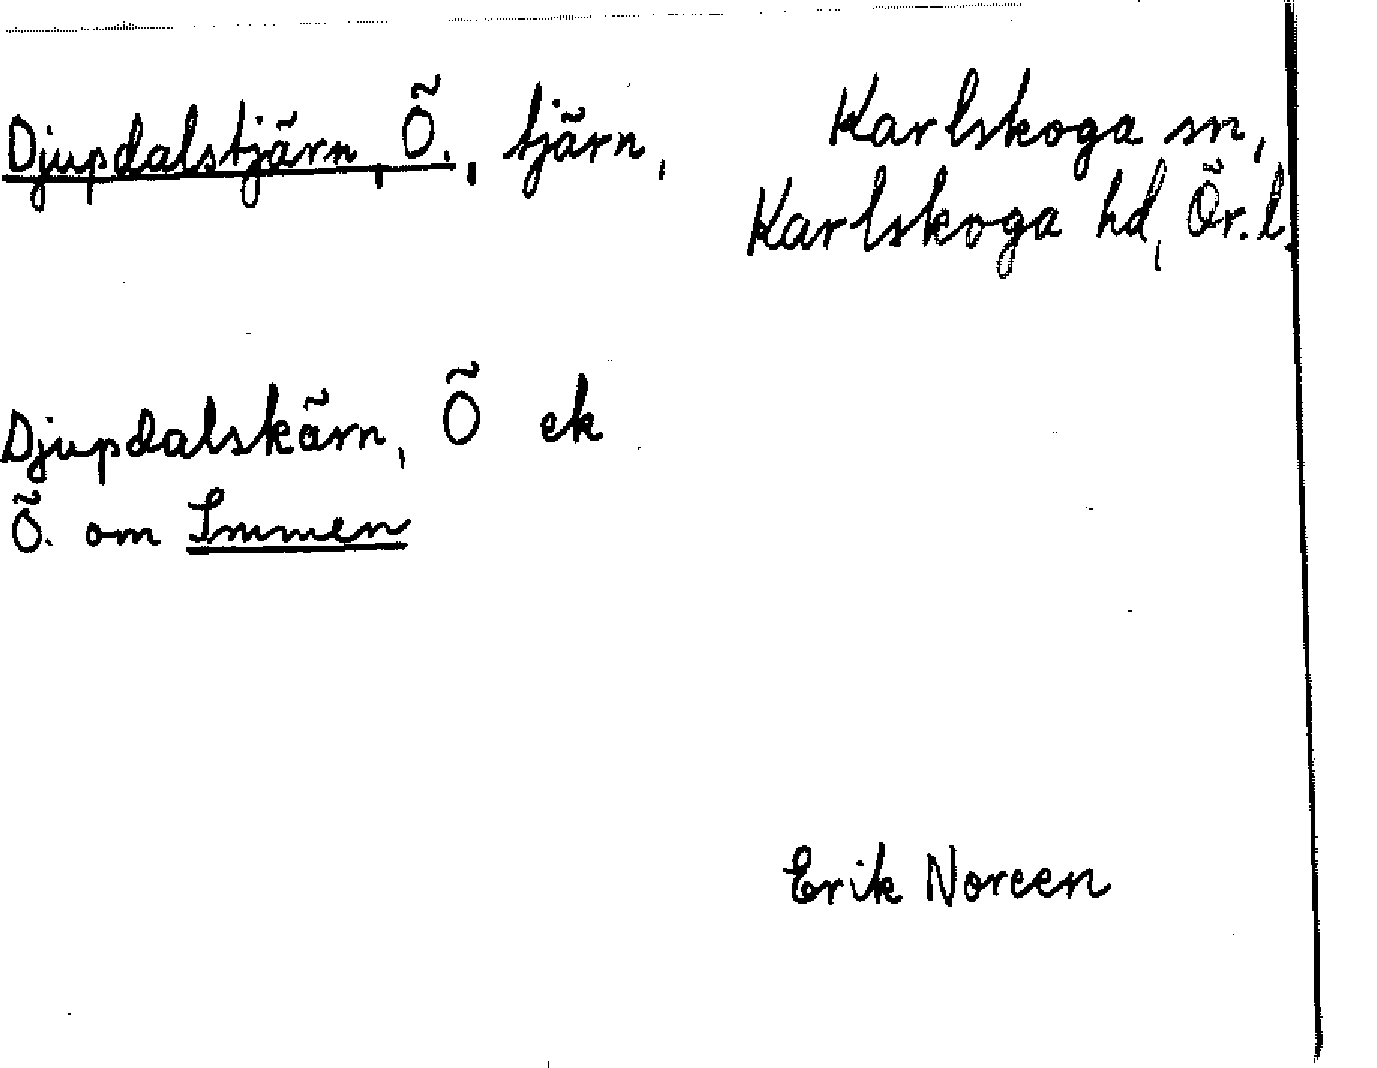 Djupdalstjärn, Ö., tjärn, Karlskoga sn,
Karlskoga hd, Ör. l.
Djupdalskärn, Ö ek
Ö. om Immen
Erik Noreen